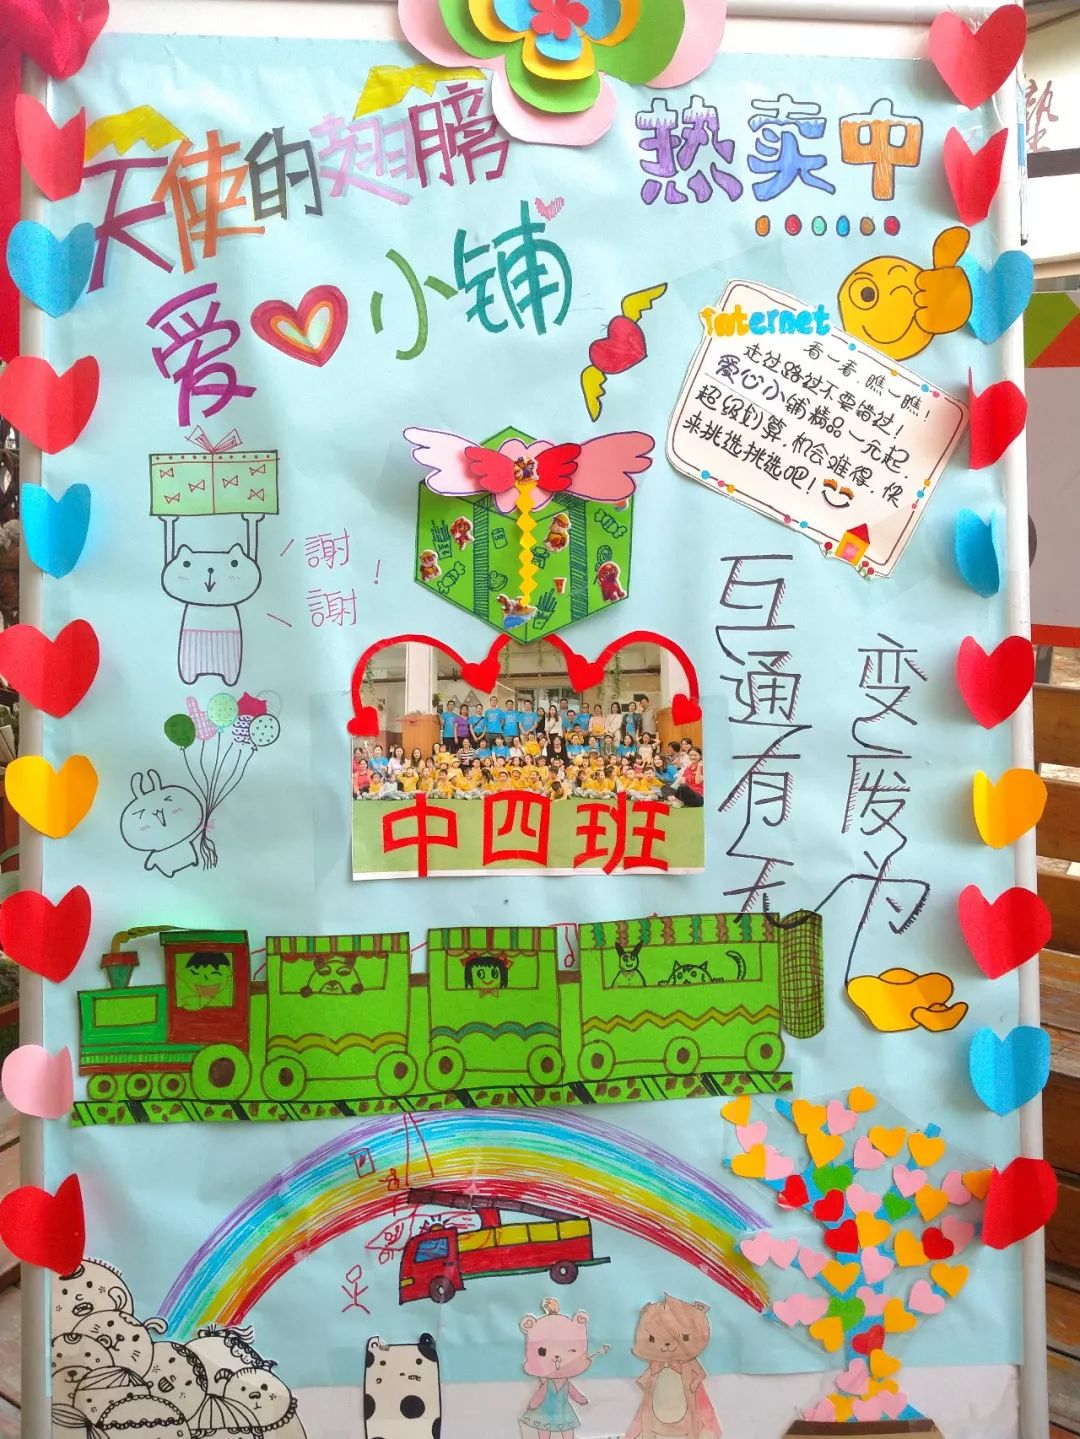 天使的翅膀
爱小铺
热卖中
internet
看一看,瞧一瞧!
走过路过不要错过!
爱心小铺精品一元起,
超级划算,机会难得,快
来挑选挑选吧!
謝
謝!
互通有无
变废为
中四班